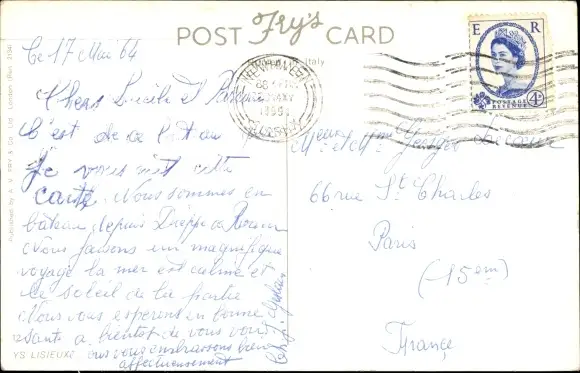 POST Fry's CARD
Italy
E R
POSTAGE REVENUE 4D
NEWHAVEN
SUSSEX
Published by A. V. FRY & Co. Ltd., London (Rex. 3194)
Ce 17 Mai 64
Chers Lucile et
C'est de ce bateau
Je vous écrit cette
carte. Nous sommes en
bâteau depuis Dieppe
Nous faisons un magnifique
voyage la mer est calme et
le soleil de la partie
Nous vous esperons en bonne
santé a bientôt de vous voir
nous vous embrassons bien
affectueusement
YS LISIEUX
Mr et Mme Georges
66 rue St Charles
Paris
(-15em)
France